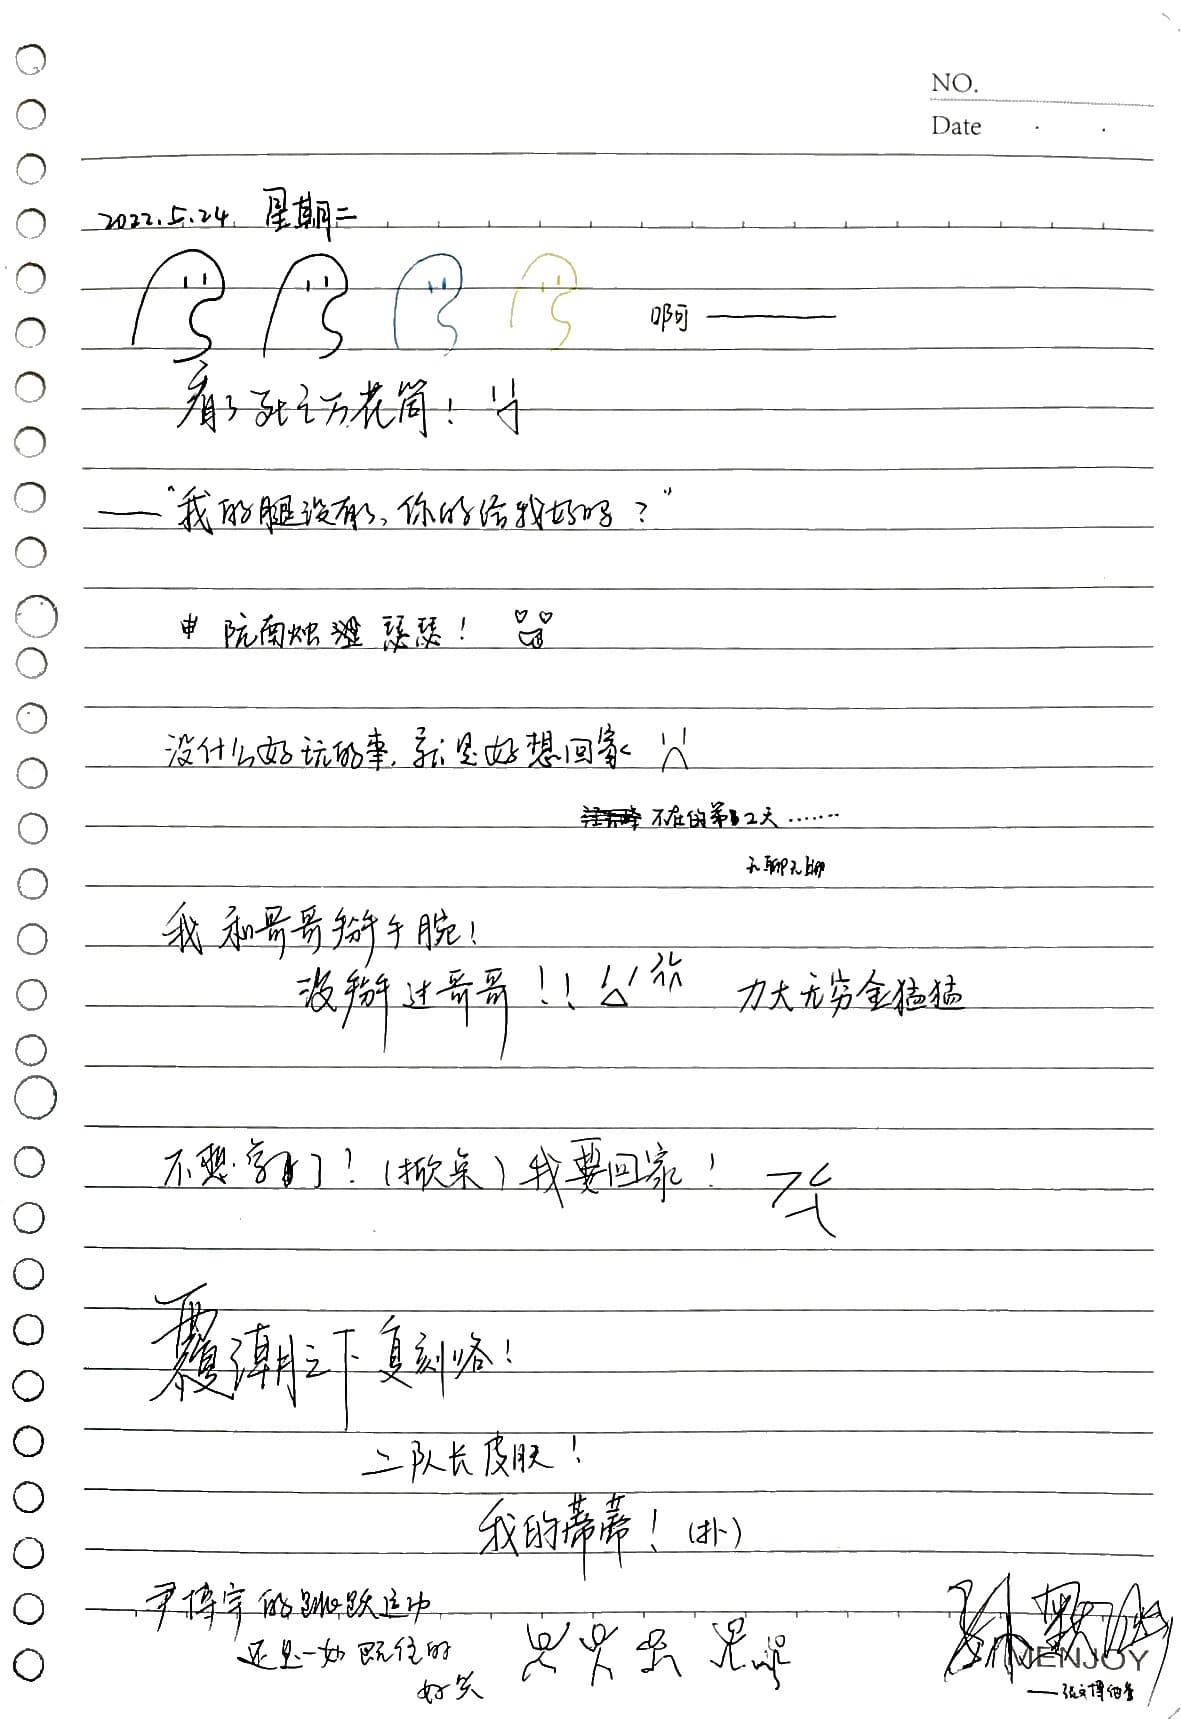 NO.
Date
2022.5.24 星期二
啊——
看了死之万花筒！
——“我的腿没有了，你的给我好吗？”
阮南烛 瑟瑟！
没什么好玩的事，就是好想回家
不在的第2天……
无聊无聊
我和哥哥掰手腕！
没掰过哥哥！！ 力大无穷金猛猛
不想学习了！（掀桌）我要回家！
覆潮之下复刻咯！
二队长皮肤！
我的蒂蒂！（扑）
尹博宇的跳跃运动
还是一如既往的
好笑
MENJOY